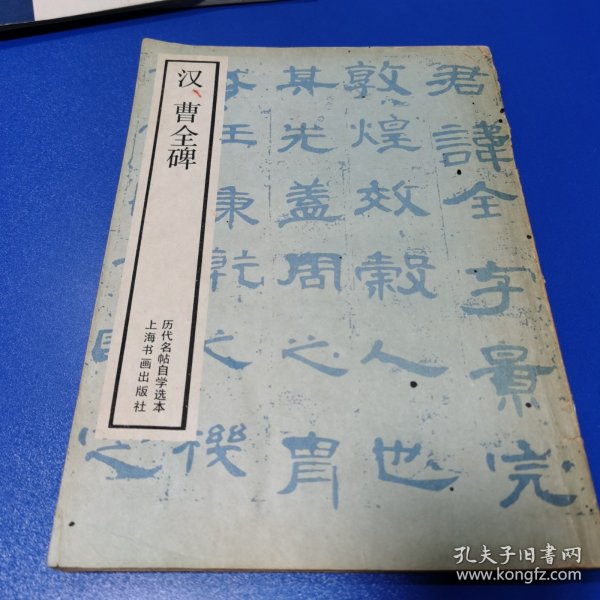 汉、曹全碑
历代名帖自学选本
上海书画出版社
君讳全字景完
敦煌效穀人也
其先盖周之胄
王秉乾之機
之
孔夫子旧书网
www.kongfz.com